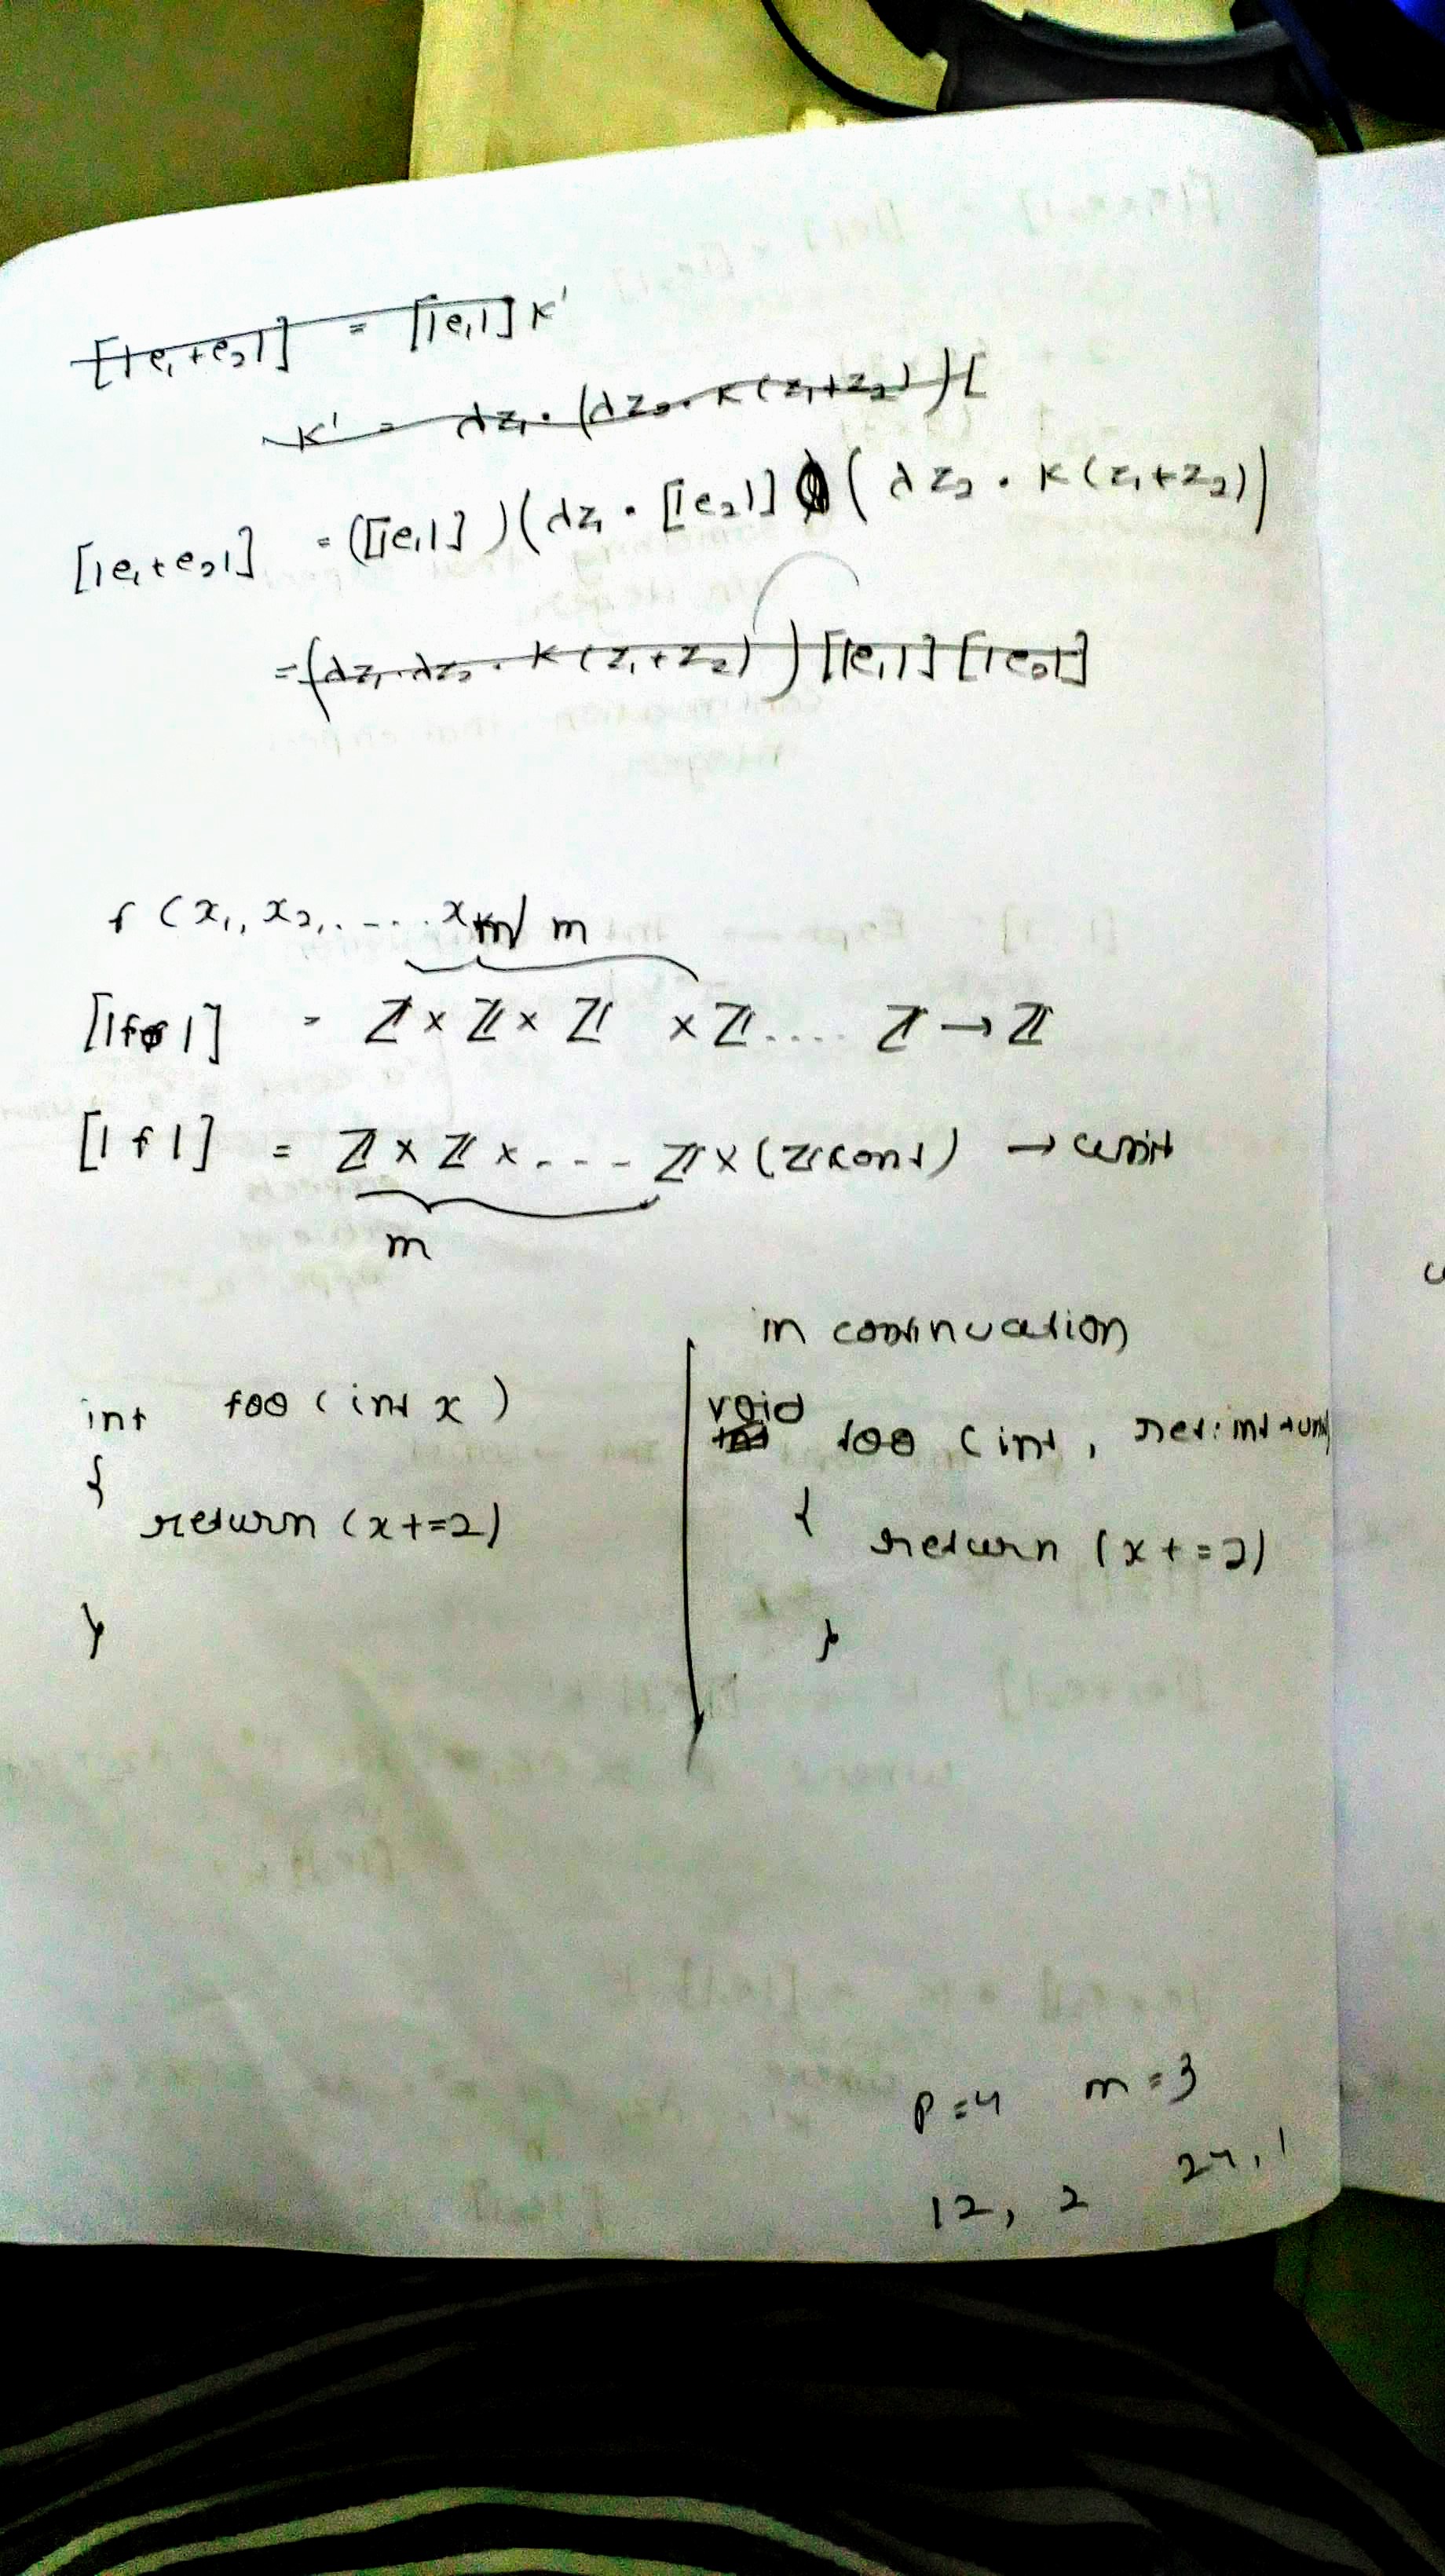 [|e₁+e₂|] = [|e₁|] K'
K' = λz₁. (λz₂. K(z₁+z₂)) [
[|e₁+e₂|] = ([|e₁|]) (λz₁. [|e₂|] (λz₂. K(z₁+z₂))
= (λz₁. λz₂. K(z₁+z₂)) [|e₁|] [|e₂|]
f (x₁, x₂, .... xₘ
m
[|f|] = ℤ × ℤ × ℤ × ℤ .... ℤ → ℤ
[|f|] = ℤ × ℤ × .... ℤ × (ℤ cont) → unit
m
in continuation
int foo (int x)
{
return (x+=2)
}
void foo (int, ret: int → unit
{
return (x+=2)
}
p=4 m=3
12, 2 24, 1